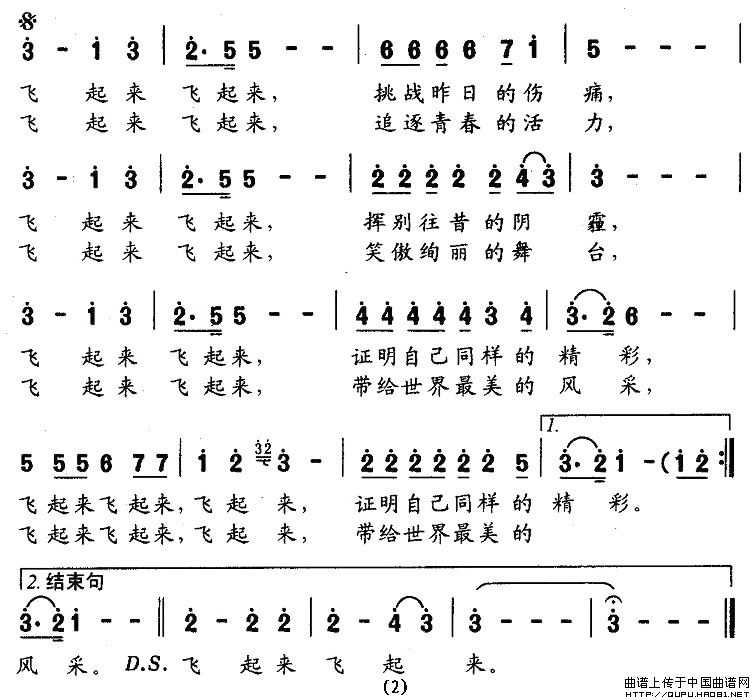 3 - 1 3 | 2. 5 5 5 - - | 6 6 6 6 7 1 | 5 - - - |
飞 起来 飞起来, 挑战昨日的伤 痛,
飞 起来 飞起来, 追逐青春的活 力,
3 - 1 3 | 2. 5 5 - - | 2 2 2 2 2 4 3 | 3 - - - |
飞 起来 飞起来, 挥别往昔的阴 霾,
飞 起来 飞起来, 笑傲绚丽的舞 台,
3 - 1 3 | 2. 5 5 - - | 4 4 4 4 4 3 4 | 3. 2 6 - - |
飞 起来 飞起来, 证明自己同样的 精 彩,
飞 起来 飞起来, 带给世界最美的 风 采,
1.
5 5 5 6 7 7 | 1 2 32 3 - | 2 2 2 2 2 2 5 | 3. 2 1 - (1 2 :||
飞起来飞起来,飞起 来, 证明自己同样的 精 彩。
飞起来飞起来,飞起 来, 带给世界最美的
2. 结束句
3. 2 1 - - || 2 - 2 2 | 2 - 4 3 | 3 - - - | 3 - - - ||
风 采。 D.S. 飞 起来飞 起 来。
(2)
曲谱上传于中国曲谱网
HTTP://QUPU.HAO81.NET